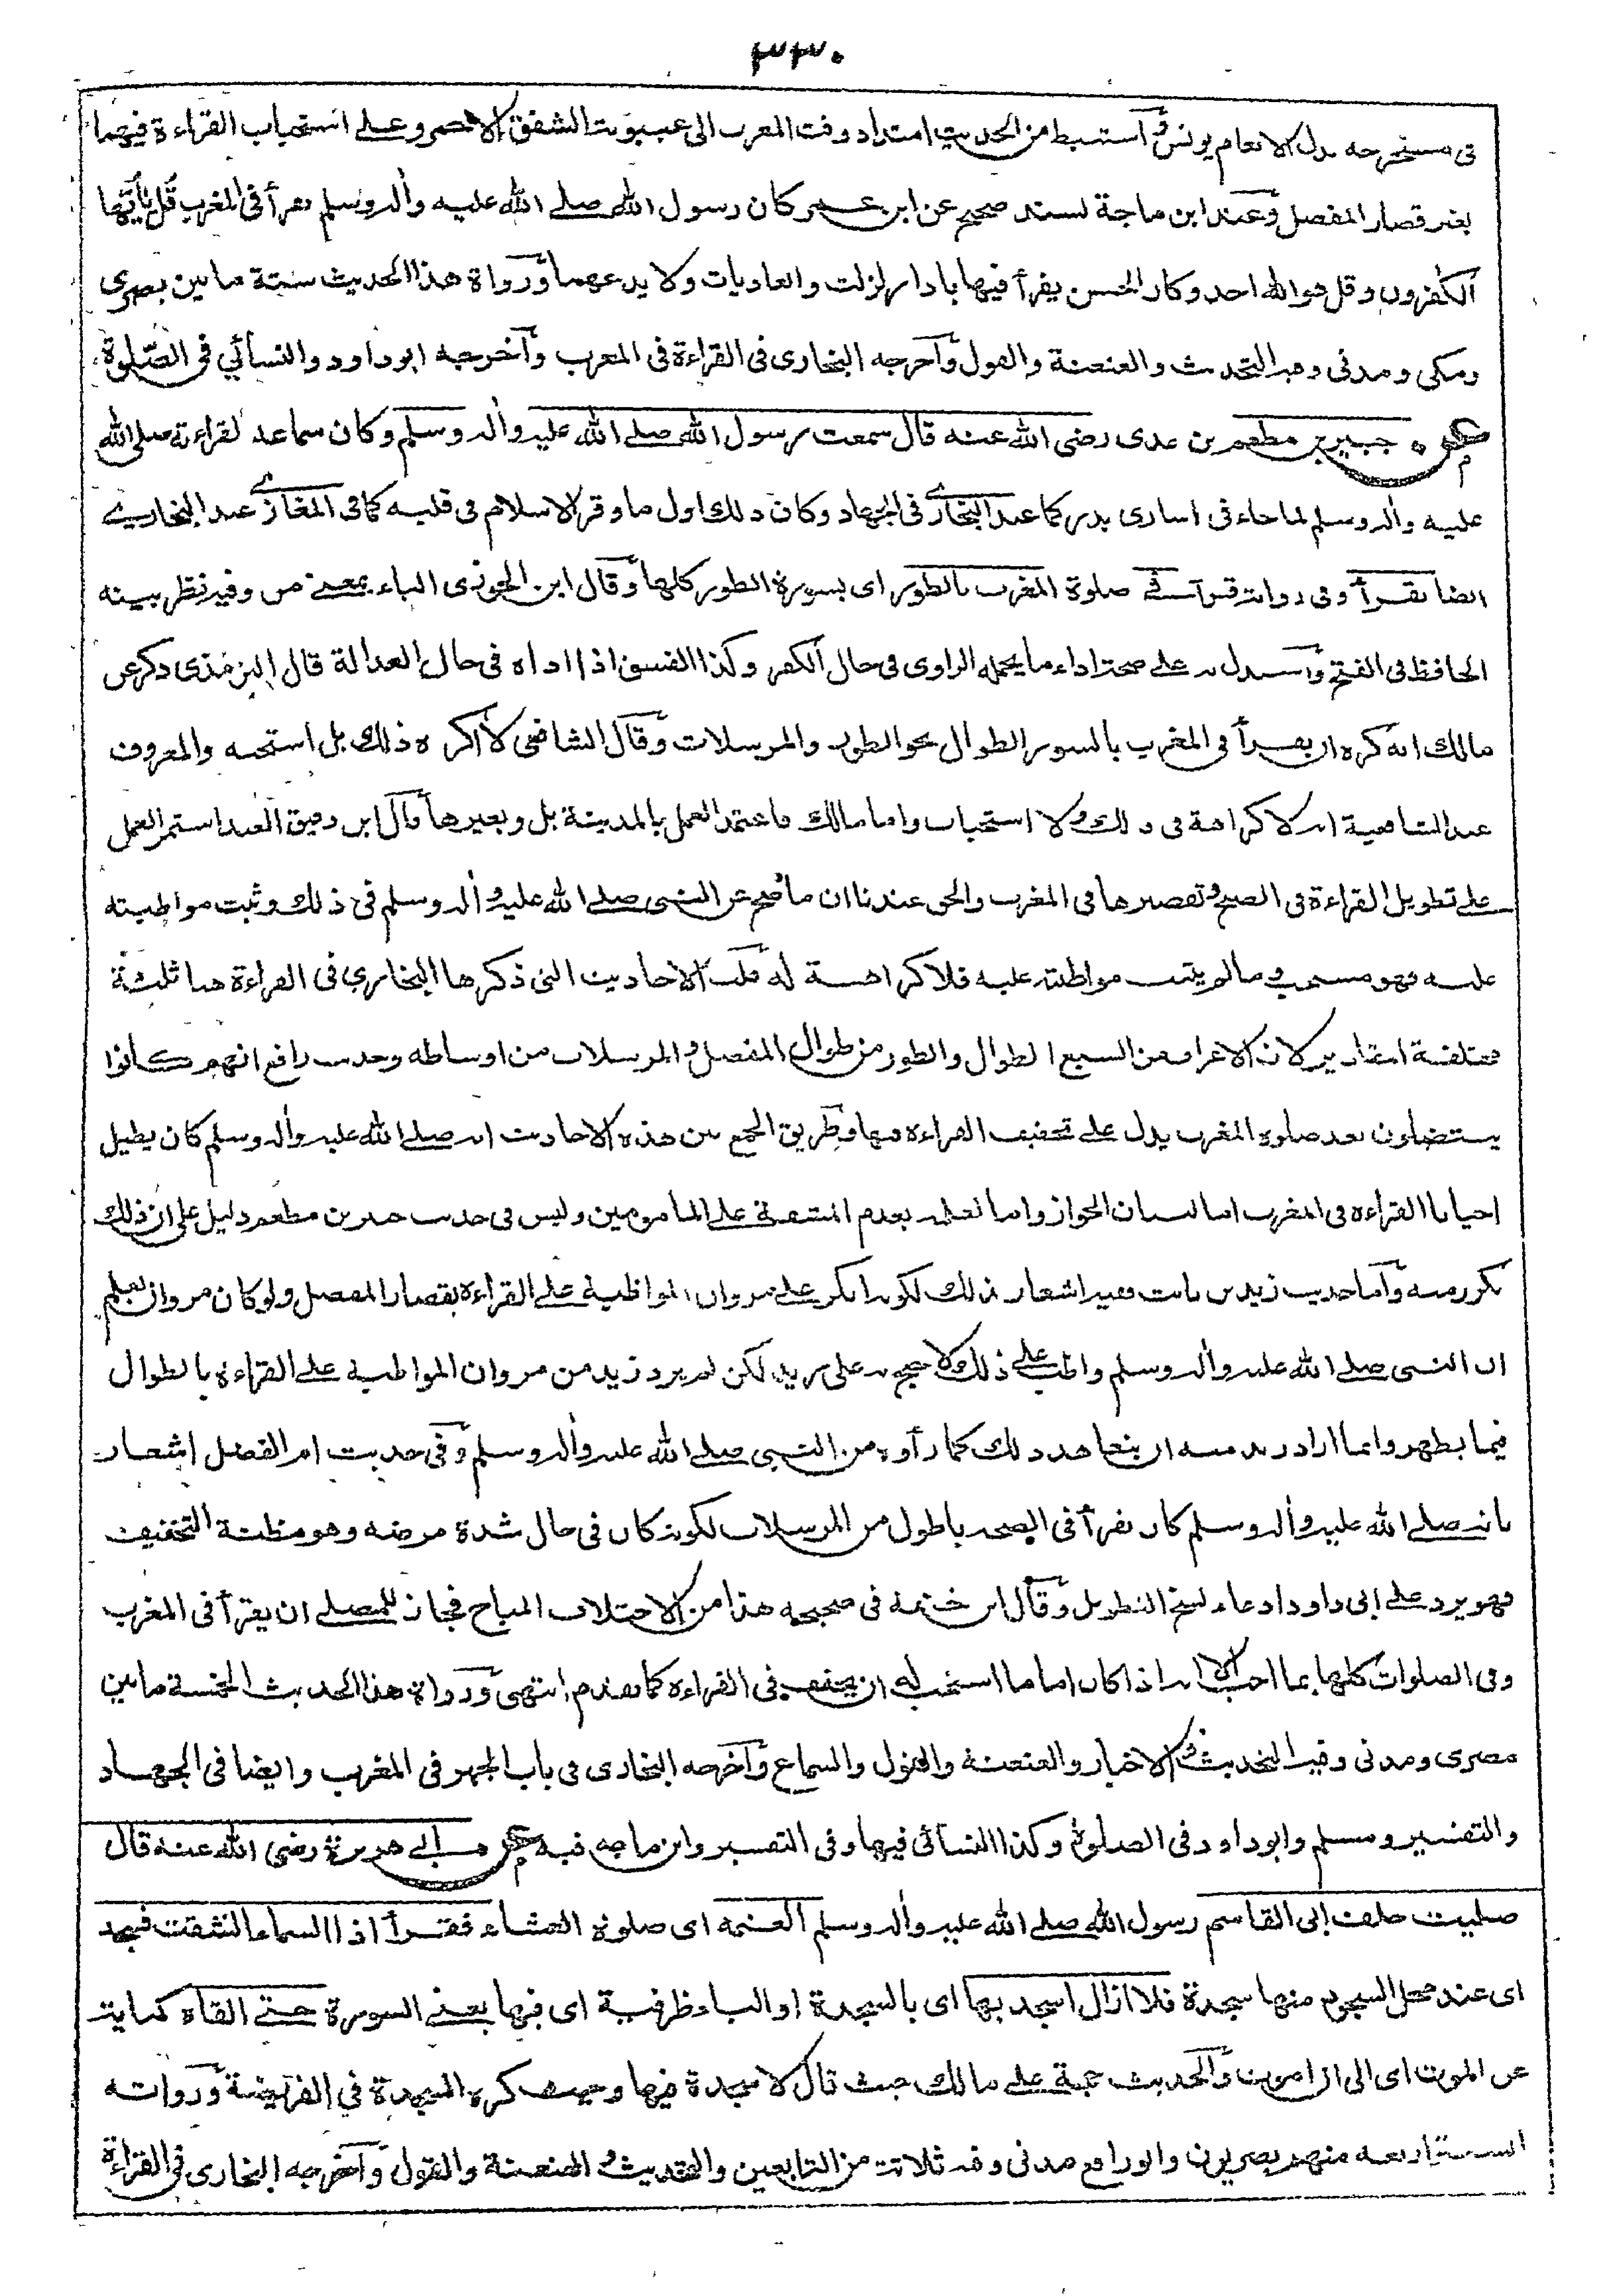 ٣٣٠
فى مستخرجه بدل الانعام يونس وآستنبط من الحديث امتداد وقت المغرب الى غيبوبة الشفق الاحمر وعلے استحباب القراءة فيهما
بغير قصار المفصل وعند ابن ماجة بسند صحيح عن ابن عمر كان رسول الله صلے الله عليه وألہ وسلم يقرأ فى المغرب قُل يٰأَيّها
الكٰفرون وقل هو الله احد وكان الحسن يقرأ فيها باذا زلزلت والعاديات ولا يدعهما وَرواة هذا الحديث ستة ما بين بصرى
ومكى ومدنى وفيہ التحديث والعنعنة والقول وآخرجه البخارى فى القراءة فى المغرب وآخرجه ابوداود والنسأئي فى الصّلوة
عن جبير بن مطعم بن عدى رضى الله عنه قال سمعت رسول الله صلے الله عليه وألہ وسلم وكان سماعہ لقراءته صلى الله
عليه وألہ وسلم لما جاء فى اسارى بدر كما عند البخارے فى الجهاد وكان ذلك اول ما وقر الاسلام فى قلبه كما فى المغازے عند البخارے
ايضا يقرأ وفى رواية قرأ فے صلوة المغرب بالطور اى بسورة الطور كلها وقال ابن الجوزى الباء بمعنے من وفيہ نظر بينه
الحافظ فى الفتح وآستدل بہ علے صحة اداء ما يحمله الراوى فى حال الكفر وكذا الفسق اذا اداه فى حال العدالة قال الترمذى ذكر عن
مالك انه كره ان يقرأ فى المغرب بالسور الطوال نحو الطور والمرسلات وقال الشافعى لا أكره ذلك بل استحبه والمعروف
عند الشافعية انہ لا كراهة فى ذلك ولا استحباب واما مالك فاعتمد العمل بالمدينة بل وبغيرها قال ابن دقيق العيد استمر العمل
علے تطويل القراءة فى الصبح وتقصيرها فى المغرب والحق عندنا ان ما صح عن النبى صلے الله عليہ وألہ وسلم فى ذلك وثبت مواظبته
عليه فهو مستحب وما لم يثبت مواظبتہ عليه فلا كراهة له قلت الاحاديث التى ذكرها البخارى فى القراءة هنا ثلثة
مختلفة المقادير لان الاعراف من السبع الطوال والطور من طوال المفصل والمرسلات من اوساطه وحديث رافع انهم كانوا
يستضلون بعد صلوة المغرب يدل علے تخفيف القراءة فيها وطريق الجمع بين هذه الاحاديث انہ صلے الله عليہ وألہ وسلم كان يطيل
احيانا القراءة فى المغرب اما لبيان الجواز واما لعلمہ بعدم المشقة علے المأمومين وليس فى حديث جبير بن مطعم دليل على ان ذلك
تكرر منه وآما حديث زيد بن ثابت ففيہ اشعار بذلك لكونہ انكر علے مروان المواظبة علے القراءة بقصار المفصل ولو كان مروان يعلم
ان النبى صلے الله عليہ وألہ وسلم واظب علے ذلك لاحتج بہ على زيد لكن لم يرد زيد من مروان المواظبة علے القراءة بالطوال
فيما يظهر وانما اراد زيد منه ان يتعاهد ذلك كما رأوه من النبي صلے الله عليہ وألہ وسلم وفى حديث ام الفضل اشعار
بانہ صلے الله عليہ وألہ وسلم كان يقرأ فى الصحة باطول من المرسلات لكونہ كان فى حال شدة مرضه وهو مظنة التخفيف
فهو يرد علے ابى داود ادعاء نسخ التطويل وقال ابن خزيمة فى صحيحه هذا من الاختلاف المباح فجائز للمصلے ان يقرأ فى المغرب
وفى الصلوات كلها بما احب الا انہ اذا كان اماما استحب له ان يخفف فى القراءة كما تقدم انتهى وَرواة هذا الحديث الخمسة ما بين
مصرى ومدنى وفيہ التحديث والاخبار والعنعنة والقول والسماع وآخرجه البخارى فى باب الجهر فى المغرب وايضا فى الجهاد
والتفسير ومسلم وابو داود فى الصلوة وكذا النسأئى فيها وفى التفسير وابن ماجه فيه عن ابے هريرة رضى الله عنه قال
صليت خلف ابى القاسم رسول الله صلے الله عليہ وألہ وسلم العتمة اى صلوة العشاء فقرأ اذا السماء انشقت فسجد
اى عند محل السجود منها سجدة فلا ازال اسجد بها اى بالسجدة او الباء ظرفية اى فيها يعنے السورة حتے القاه كناية
عن الموت اى الى ان اموت والحديث حجة علے مالك حيث قال لا سجدة فيها وحيث كره السجدة في الفريضة وَرواته
الستة اربعه منهم بصريون وابو رافع مدنى وفيہ ثلاثة من التابعين والتحديث والعنعنة والقول وآخرجه البخارى فى القراءة